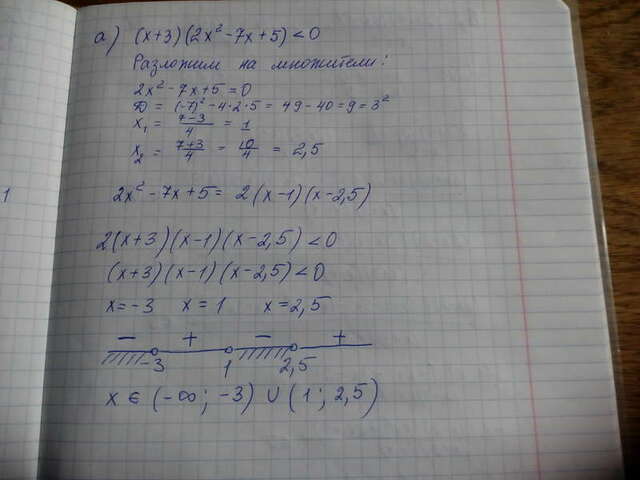 а) (x+3)(2x²-7x+5)<0
Разложим на множители:
2x²-7x+5=0
D = (-7)²-4·2·5 = 49-40=9=3²
x₁ = (7-3)/4 = 1
x₂ = (7+3)/4 = 10/4 = 2,5
2x²-7x+5 = 2(x-1)(x-2,5)
1
2(x+3)(x-1)(x-2,5)<0
(x+3)(x-1)(x-2,5)<0
x=-3 x=1 x=2,5
- + - +
-3 1 2,5
x ∈ (-∞; -3) ∪ (1; 2,5)